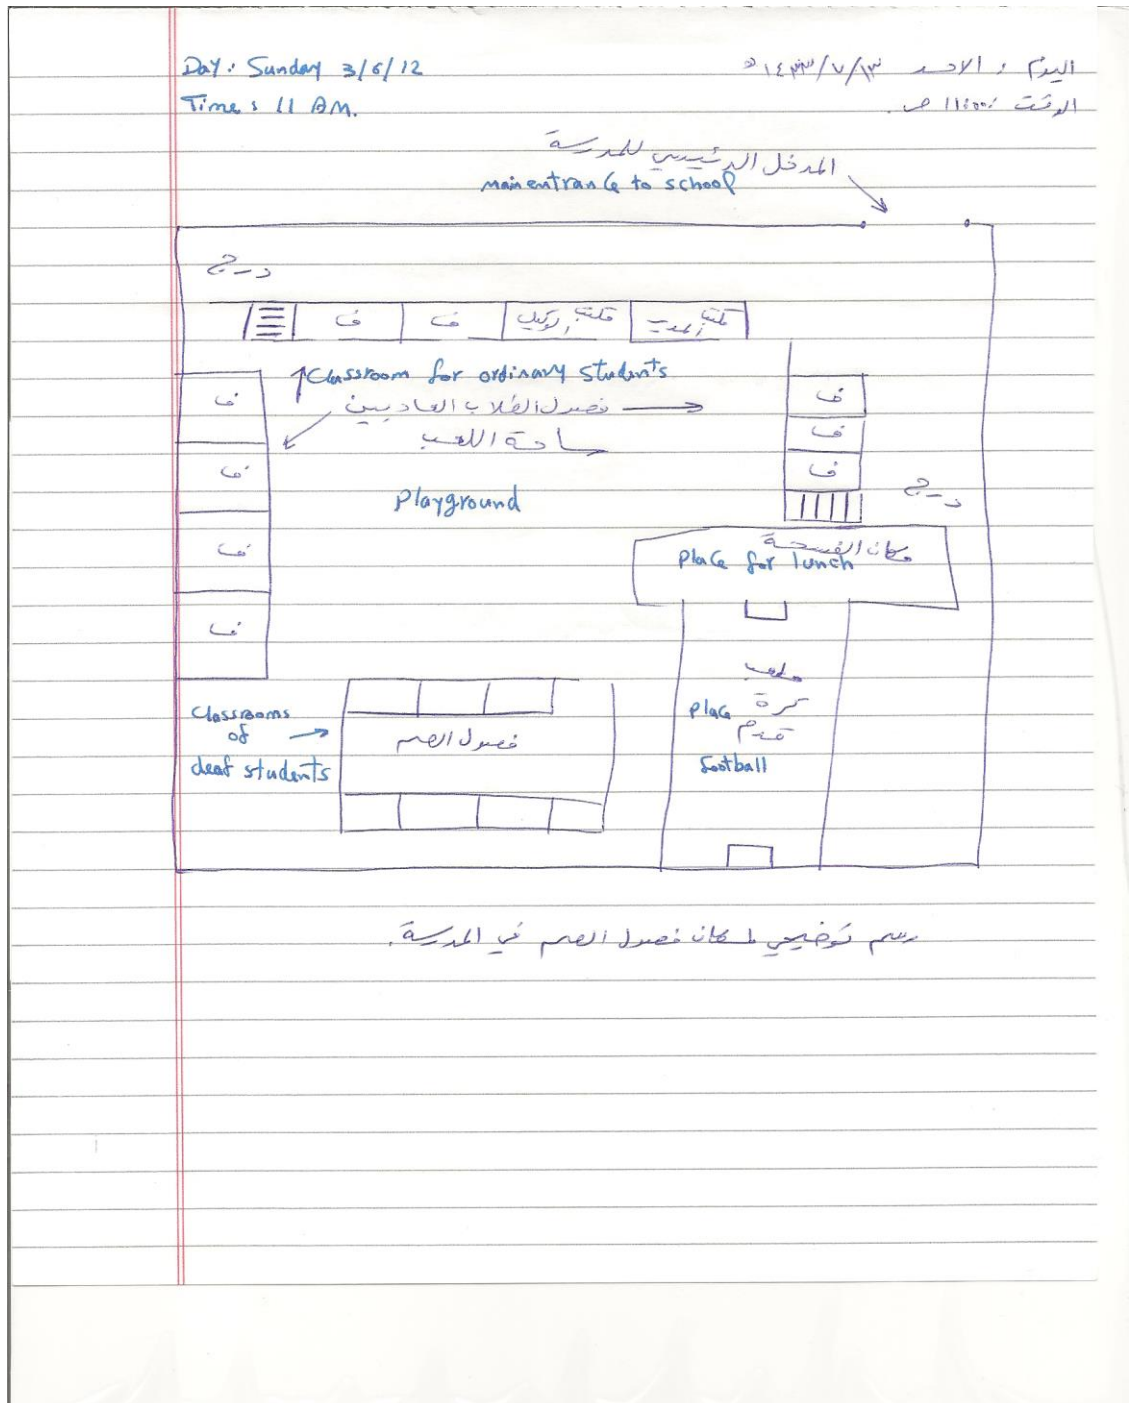 Day: Sunday 3/6/12
اليوم : الاحد ١٤٣٣/٧/١٣ه
Time: 11 AM.
الوقت 11:00 ص.
المدخل الرئيسي للمدرسة
main entrance to school
درج
ف
ف
مكتب الوكيل
مكتب المدير
Classroom for ordinary students
ف
فصول الطلاب العاديين
ف
ساحة اللعب
ف
ف
ف
Playground
درج
مكان الفسحة
Place for lunch
ف
ف
ملعب
كرة
قدم
Place
football
Classrooms
of
deaf students
فصول الصم
رسم توضيحي لمكان فصول الصم في المدرسة.